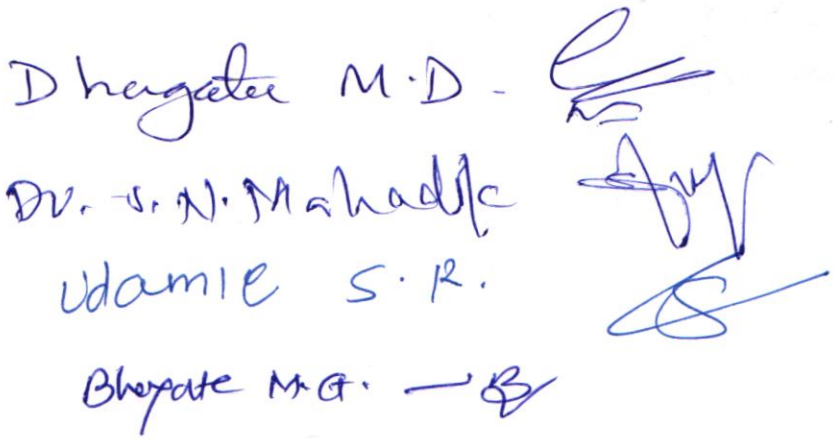 Dhagate M.D.
Dr. S. N. Mahadik
Udamle S.R.
Bhoyate M.G.